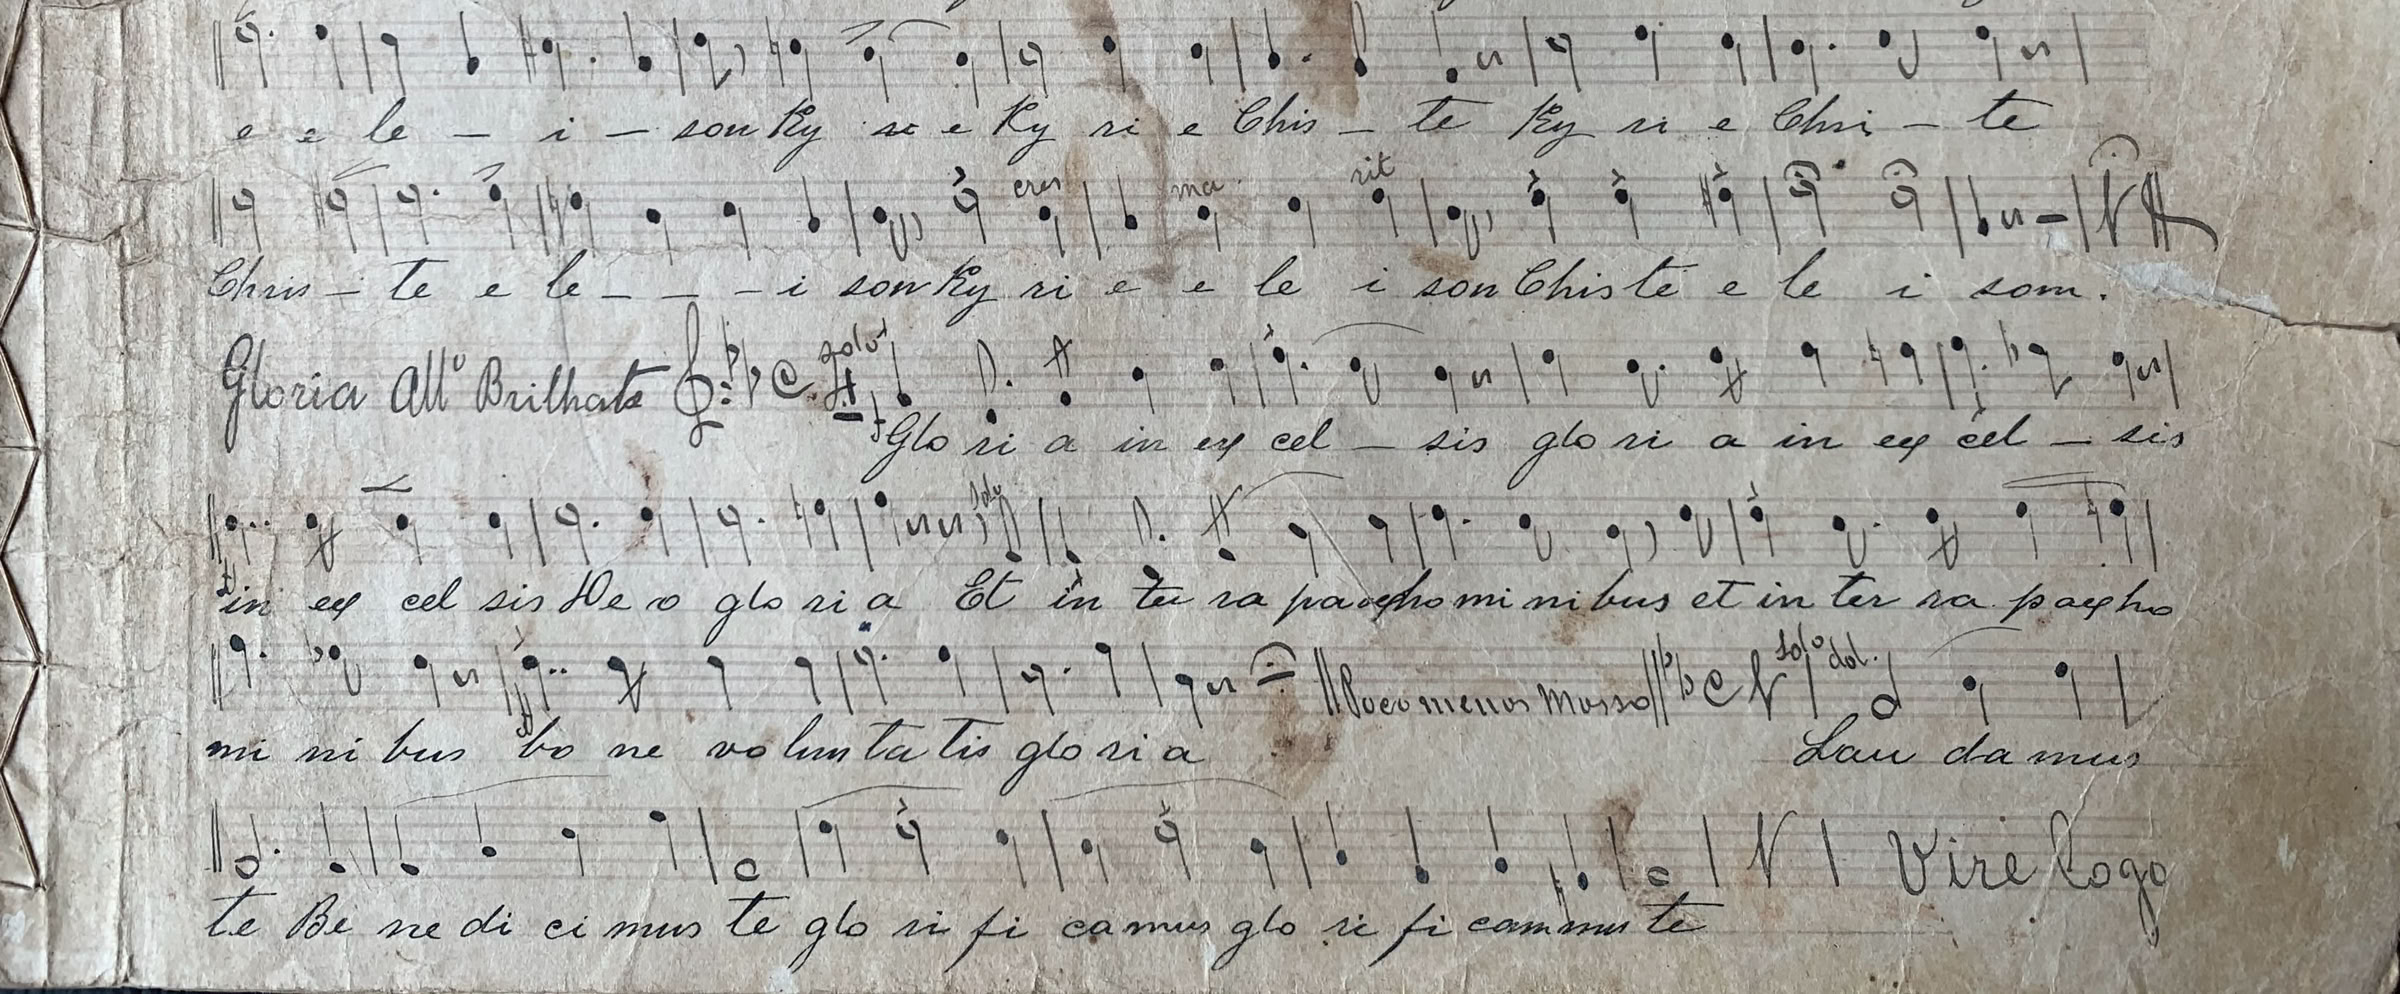 e e le _ i _ son Ky ri e Ky ri e Chis _ te Ky ri e Chri _ te
cres ma rit
Chris _ te e le _ _ _ i son Ky ri e e le i son Chiste e le i som.
Gloria All° Brilhate solo
f Glo ri a in ex cel _ sis glo ri a in ex cel _ sis
Solo
in ex cel sis De o glo ri a Et in te ra pax ho mi ni bus et in ter ra pax ho
Poco menos Mosso Solo dol.
mi ni bus bo ne vo lun ta tis glo ri a Lau da mus
Vire logo
te Be ne di ci mus te glo ri fi ca mus glo ri fi cammus te